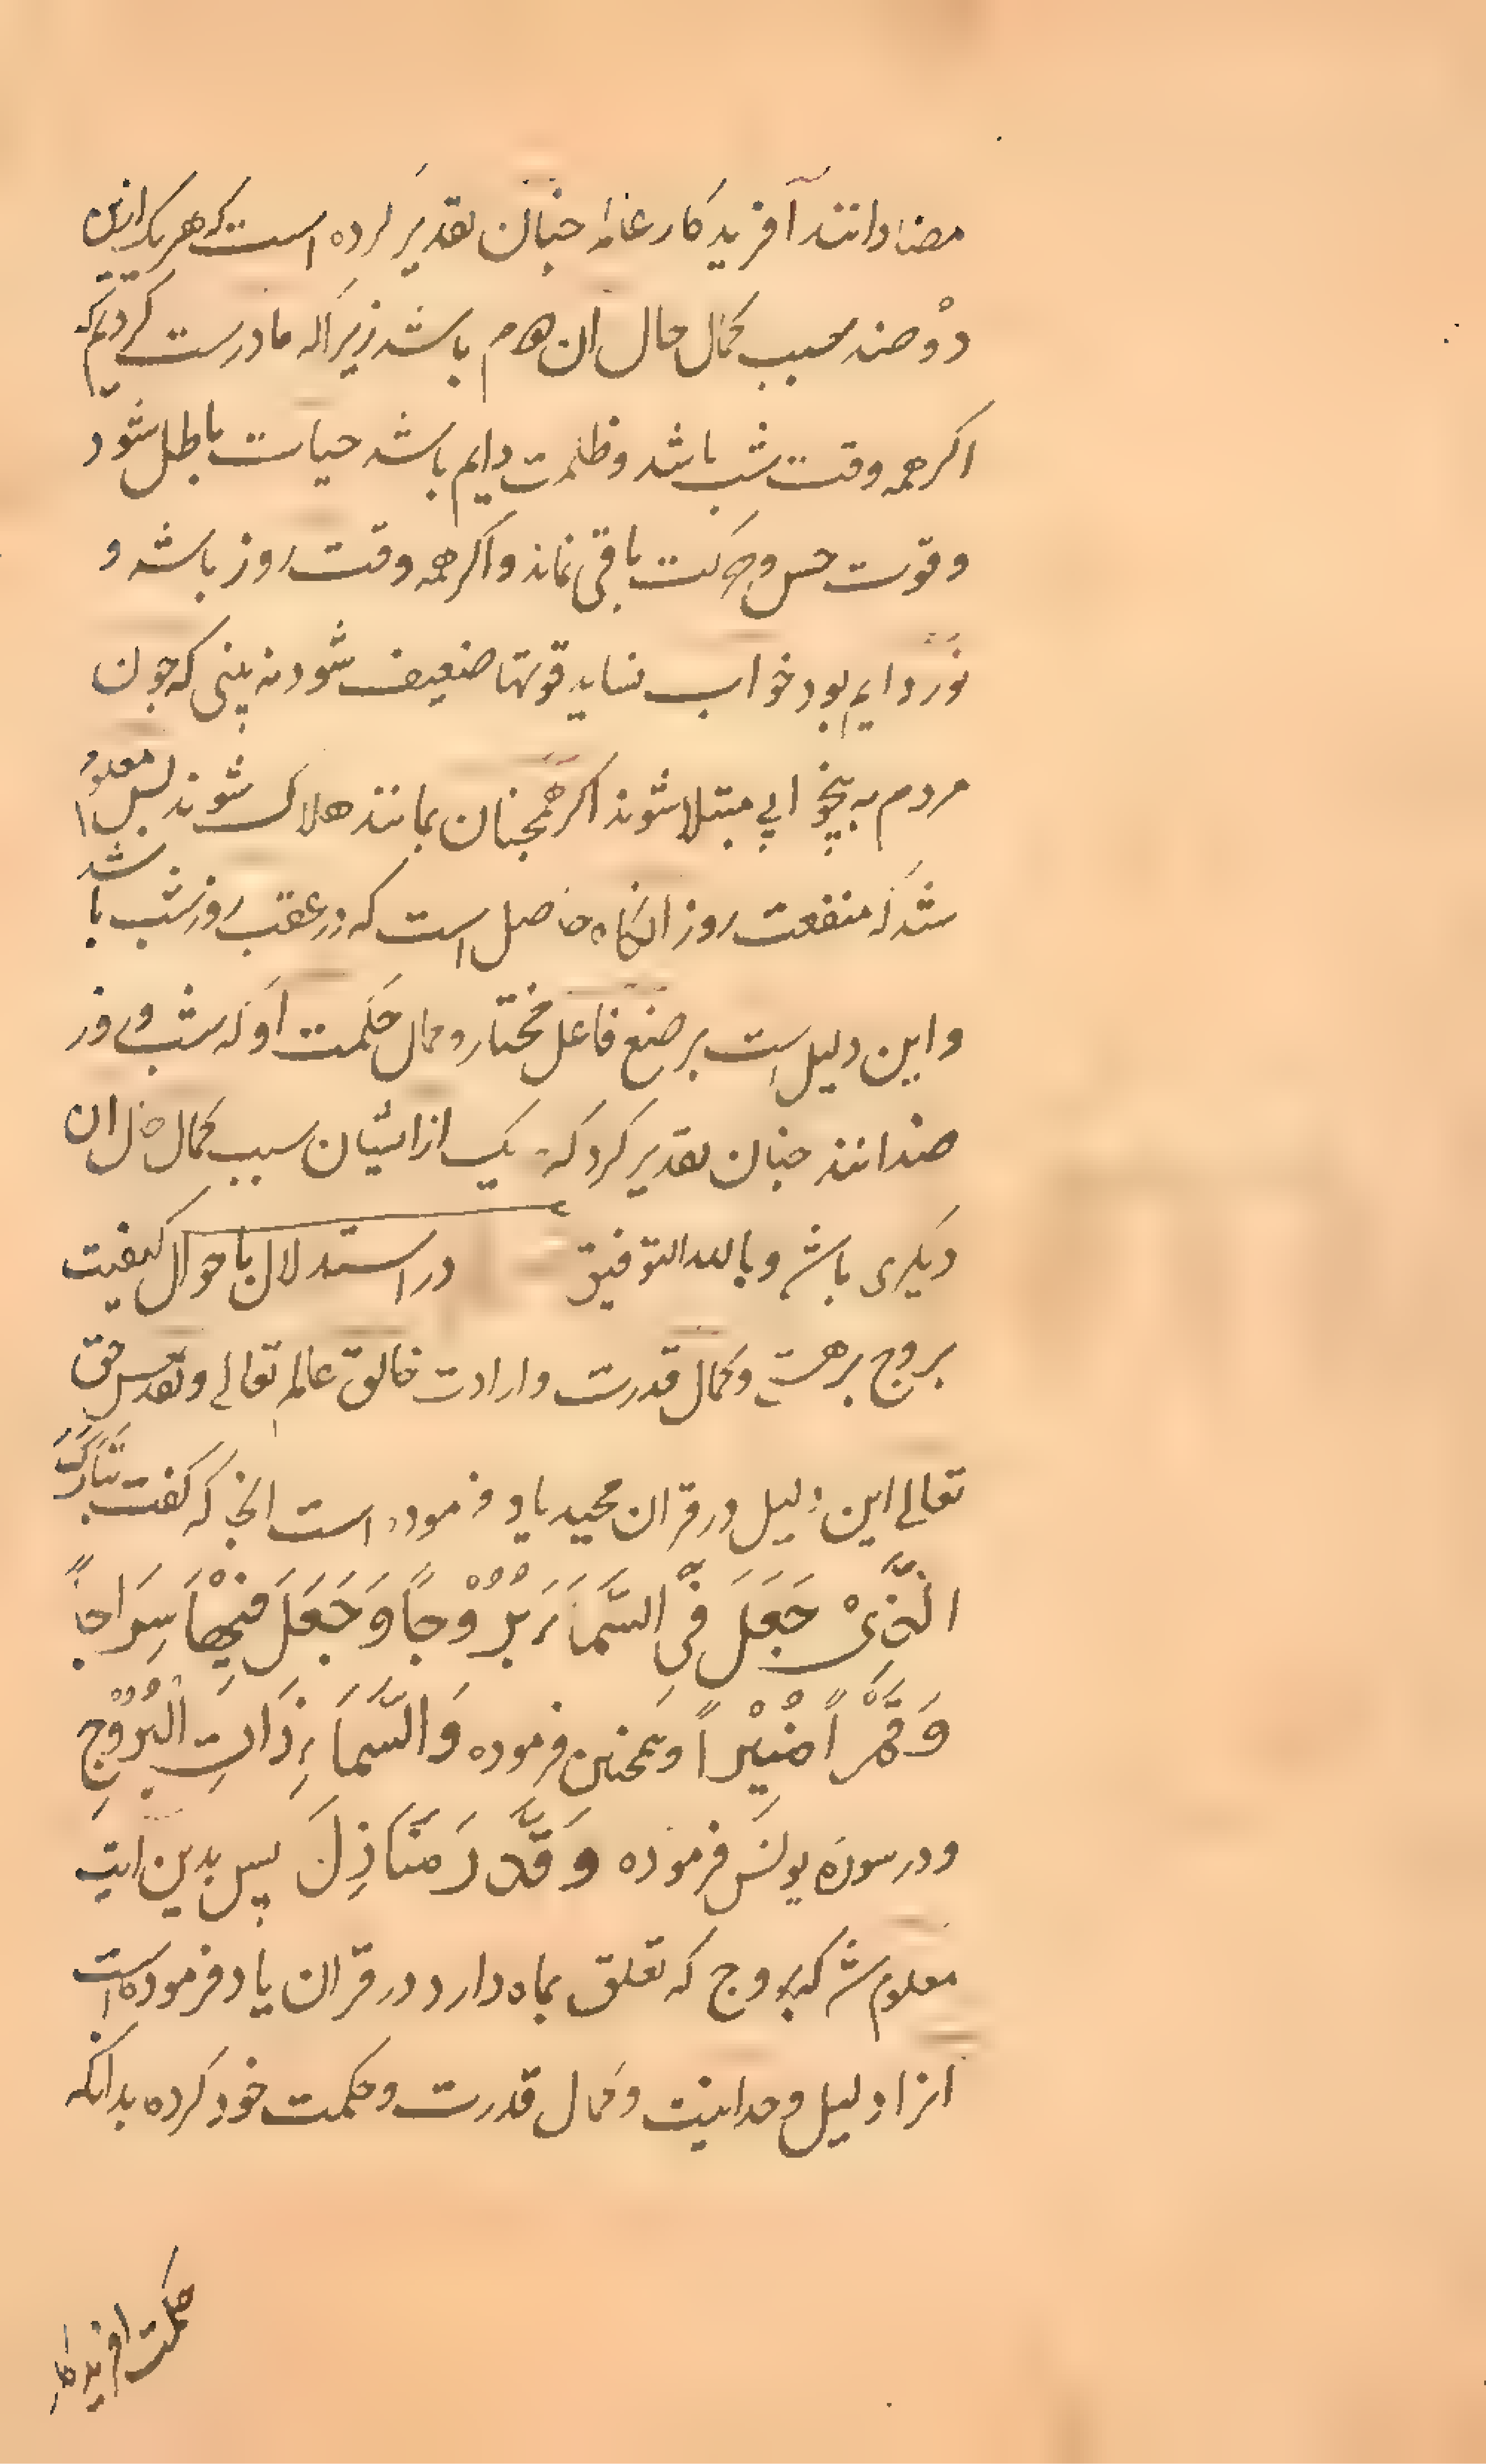 مضاداند آفریدکار عالم جنان تقدیر کرده است که هر یک ازین
دو ضد سبب کمال حال ان دوم باشد زیراکه ما درست کردیم که
اکر همه وقت شب باشد و ظلمت دایم باشد حیات باطل شود
و قوت حس و حرکت باقی نماند و اکر همه وقت روز باشد و
نور دایم بود خواب نیاید قوتها ضعیف شود نه بینی که جون
مردم به بیخوابی مبتلا شوند اکر همجنان بمانند هلاک شوند پس معلوم
شد که منفعت روز انکاه حاصل است که در عقب روز شب باشد
و این دلیل است بر صنع فاعل مختار و کمال حکمت او که شب و روز
ضداند جنان تقدیر کرد که یک از ایشان سبب کمال حال ان
دیکری باشد و بالله التوفیق در استدلال باحوال کیفیت
بروج بر هستی و کمال قدرت و ارادت خالق عالم تعالی و تقدس حق
تعالی این دلیل در قران مجید یاد فرموده است انجا که کفت تَبَارَکَ
الَّذِیْ جَعَلَ فِی السَّمَاءِ بُرُوْجاً وَجَعَلَ فِیْهَا سِرَاجاً
وَقَمَراً مُنِیْراً و همجنین فرموده وَالسَّمَاءِ ذَاتِ الْبُرُوْجِ
و در سوره یونس فرموده وَقَدَّرَ مَنَازِلَ پس بدین ایت
معلوم شد که بروج که تعلق بماه دارد در قران یاد فرموده است
انرا دلیل وحدانیت و کمال قدرت و حکمت خود کرده بدانکه
حکمت افریدکار